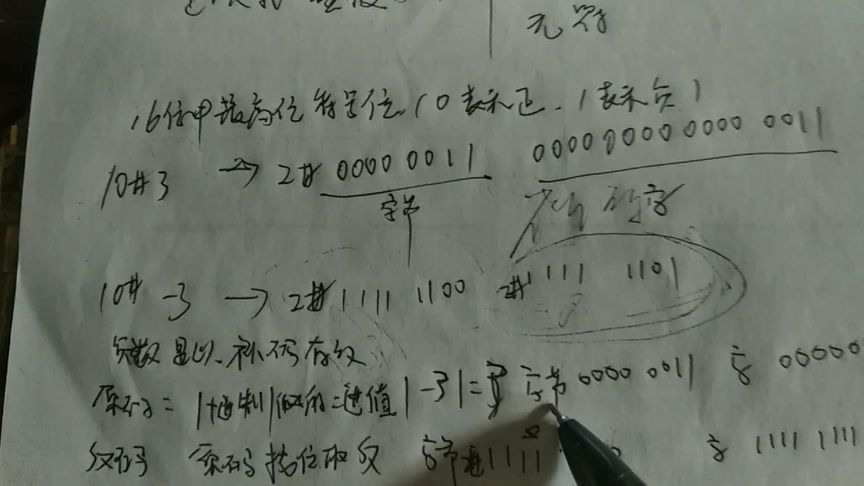 无符
16位中最高位符号位(0表示正、1表示负)
10#3 → 2# 0000 0011 0000 0000 0000 0011
字节 字
10# -3 → 2# 1111 1100 2# 1111 1101
负数是以补码存放
原码 = |十进制|取的二进值 |-3|=3 字节 0000 0011 字 00000
反码 原码按位取反 字节 1111 字 1111 1111